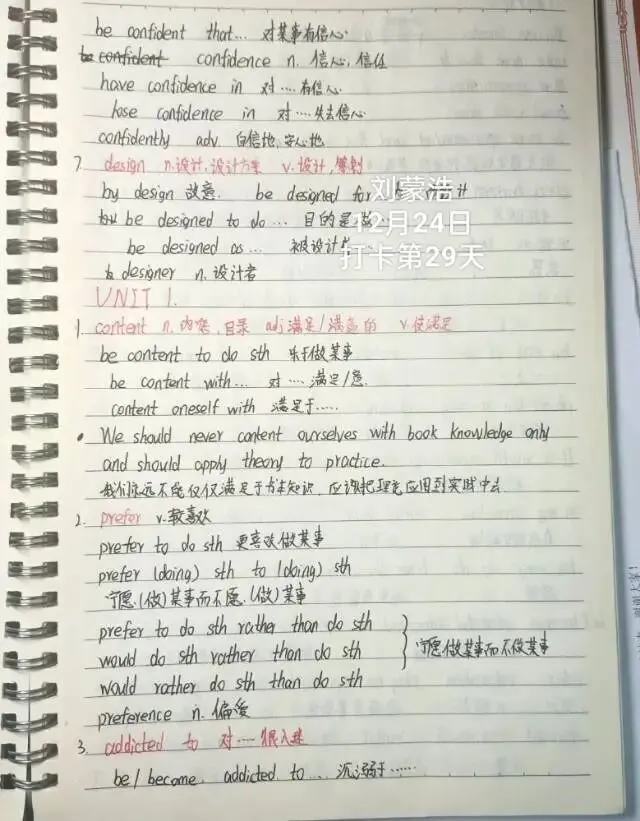 be confident that... 对某事有信心
be confident confidence n. 信心,信任
have confidence in 对....有信心
lose confidence in 对....失去信心
confidently adv. 自信地,安心地
7. design n.设计,设计方案 v.设计,筹划
by design 故意. be designed for
be designed to do... 目的是做
be designed as... 被设计
designer n.设计者
刘蒙浩
12月24日
打卡第29天
UNIT 1.
1. content n.内容,目录 adj满足/满意的 v.使满足
be content to do sth 乐于做某事
be content with... 对....满足/意.
content oneself with 满足于.....
• We should never content ourselves with book knowledge only
and should apply theory to practice.
我们永远不能仅仅满足于书本知识,应该把理论应用到实践中去
2. prefer v.较喜欢
prefer to do sth 更喜欢做某事
prefer (doing) sth to (doing) sth
宁愿(做)某事而不愿(做)某事
prefer to do sth rather than do sth
would do sth rather than do sth 宁愿做某事而不做某事
would rather do sth than do sth
preference n.偏爱
3. addicted to 对....很入迷
be/become addicted to... 沉溺于......